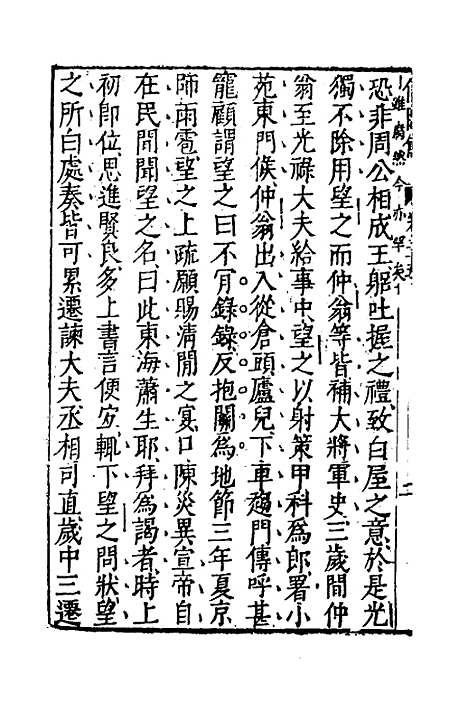 雖腐然今亦罕矣
恐非周公相成王躬吐握之禮致白屋之意於是光
獨不除用望之而仲翁等皆補大將軍史三歲間仲
翁至光祿大夫給事中望之以射策甲科為郎署小
苑東門候仲翁出入從倉頭廬兒下車趨門傳呼甚
寵顧謂望之曰不肎錄錄反抱關為地節三年夏京
師雨雹望之上疏願賜清閒之宴口陳災異宣帝自
在民間聞望之名曰此東海蕭生耶拜為謁者時上
初即位思進賢良多上書言便宐輒下望之問狀望
之所白處奏皆可累遷諫大夫丞相司直歲中三遷